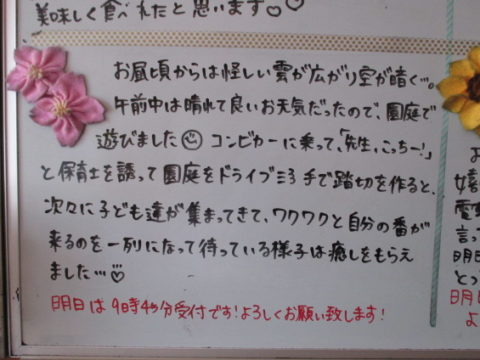 美味しく食べれたと思います♡♡
お昼頃からは怪しい雲が広がり空が暗く…。
午前中は晴れて良いお天気だったので、園庭で
遊びました☺ コンビカーに乗って、「先生、こっちー!」
と保育士を誘って園庭をドライブミ3 手で踏切を作ると、
次々に子ども達が集まってきて、ワクワクと自分の番が
来るのを一列になって待っている様子は癒しをもらえ
ました…♡
明日は9時45分受付です!よろしくお願い致します!
お
嬉
電
言っ
明日
とっ
明日
よ